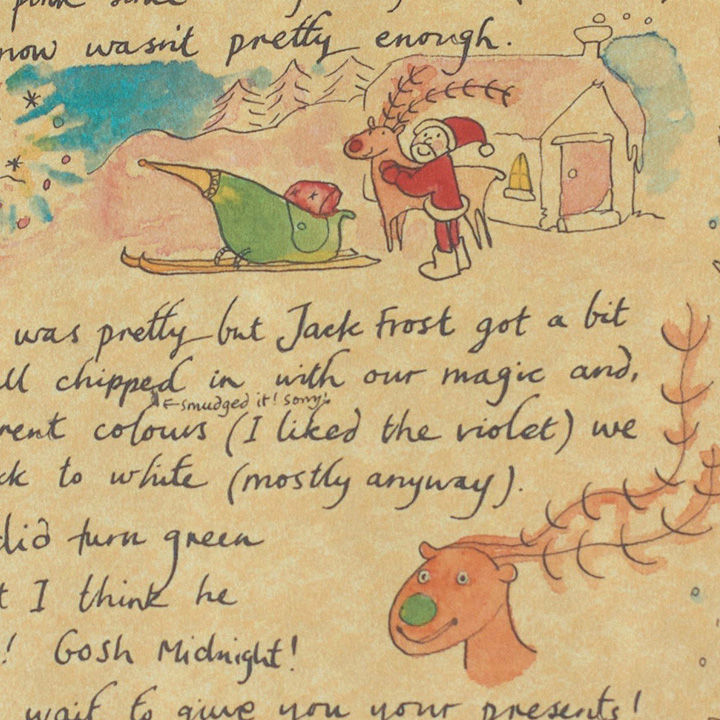 now wasn't pretty enough.
was pretty but Jack Frost got a bit
all chipped in with our magic and,
←smudged it! sorry!
rent colours (I liked the violet) we
ck to white (mostly anyway).
did turn green
t I think he
! Gosh Midnight!
wait to give you your presents!